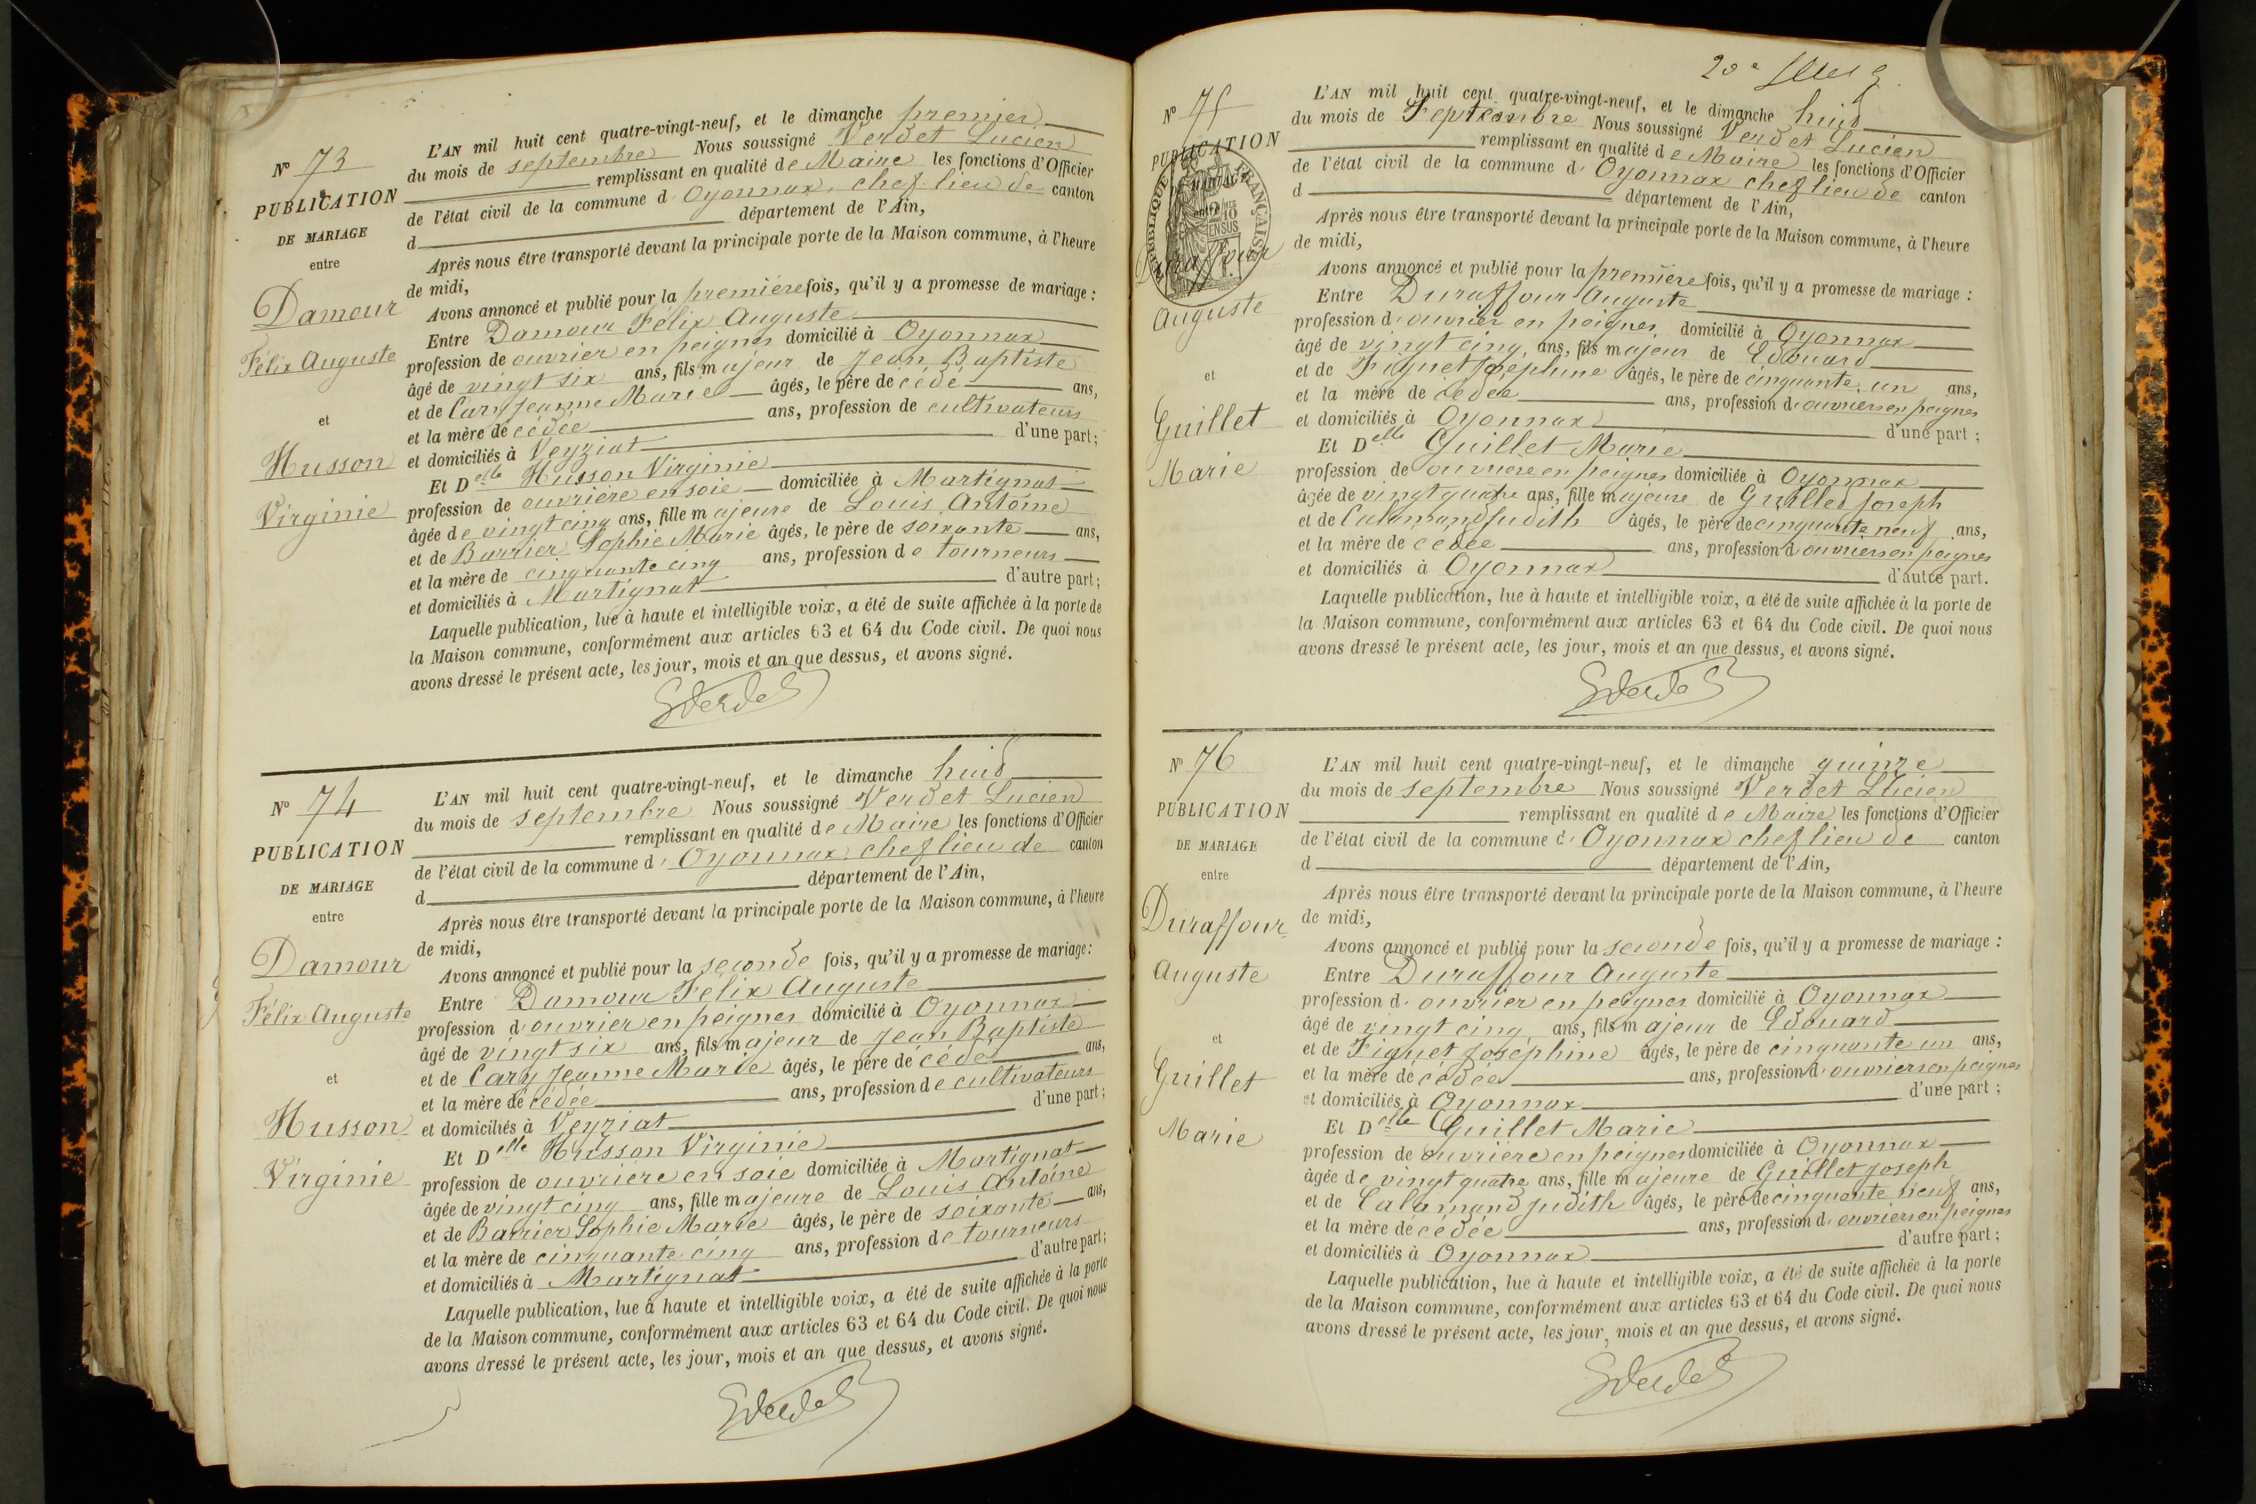 Nº 73
PUBLICATION
DE MARIAGE
entre
Damour
Félix Auguste
et
Husson
Virginie
L'AN mil huit cent quatre-vingt-neuf, et le dimanche premier
du mois de septembre Nous soussigné Verdet Lucien
remplissant en qualité de Maire les fonctions d'Officier
de l'état civil de la commune d' Oyonnax, chef lieu de canton
d département de l'Ain,
Après nous être transporté devant la principale porte de la Maison commune, à l'heure
de midi,
Avons annoncé et publié pour la première fois, qu'il y a promesse de mariage :
Entre Damour Félix Auguste
profession de ouvrier en peignes domicilié à Oyonnax
âgé de vingt six ans, fils majeur de Jean Baptiste
et de Cary Jeanne Marie âgés, le père de cédé ans,
et la mère de cédée ans, profession de cultivateurs
et domiciliés à Veyziat d'une part;
Et Delle Husson Virginie
profession de ouvrière en soie domiciliée à Martignat
âgée de vingt cinq ans, fille majeure de Louis Antoine
et de Barrier Sophie Marie âgés, le père de soixante ans,
et la mère de cinquante cinq ans, profession de tourneurs
et domiciliés à Martignat d'autre part;
Laquelle publication, lue à haute et intelligible voix, a été de suite affichée à la porte de
la Maison commune, conformément aux articles 63 et 64 du Code civil. De quoi nous
avons dressé le présent acte, les jour, mois et an que dessus, et avons signé.
Nº 74
PUBLICATION
DE MARIAGE
entre
Damour
Félix Auguste
et
Husson
Virginie
L'AN mil huit cent quatre-vingt-neuf, et le dimanche huit
du mois de septembre Nous soussigné Verdet Lucien
remplissant en qualité de Maire les fonctions d'Officier
de l'état civil de la commune d' Oyonnax, chef lieu de canton
d département de l'Ain,
Après nous être transporté devant la principale porte de la Maison commune, à l'heure
de midi,
Avons annoncé et publié pour la seconde fois, qu'il y a promesse de mariage:
Entre Damour Félix Auguste
profession d'ouvrier en peignes domicilié à Oyonnax
âgé de vingt six ans, fils majeur de Jean Baptiste
et de Cary Jeanne Marie âgés, le père de cédé ans,
et la mère de cédée ans, profession de cultivateurs
et domiciliés à Veyziat d'une part;
Et Delle Husson Virginie
profession de ouvrière en soie domiciliée à Martignat
âgée de vingt cinq ans, fille majeure de Louis Antoine
et de Barrier Sophie Marie âgés, le père de soixante ans,
et la mère de cinquante cinq ans, profession de tourneurs
et domiciliés à Martignat d'autre part;
Laquelle publication, lue à haute et intelligible voix, a été de suite affichée à la porte
de la Maison commune, conformément aux articles 63 et 64 du Code civil. De quoi nous
avons dressé le présent acte, les jour, mois et an que dessus, et avons signé.
20e
Nº 75
PUBLICATION
DE MARIAGE
RÉPUBLIQUE FRANÇAISE
2/10
EN SUS
Duraffour
Auguste
et
Guillet
Marie
L'AN mil huit cent quatre-vingt-neuf, et le dimanche huit
du mois de Septembre Nous soussigné Verdet Lucien
remplissant en qualité de Maire les fonctions d'Officier
de l'état civil de la commune d' Oyonnax chef lieu de canton
d département de l'Ain,
Après nous être transporté devant la principale porte de la Maison commune, à l'heure
de midi,
Avons annoncé et publié pour la première fois, qu'il y a promesse de mariage :
Entre Duraffour Auguste
profession d'ouvrier en peignes domicilié à Oyonnax
âgé de vingt cinq ans, fils majeur de Edouard
et de Fiquet Joséphine âgés, le père de cinquante un ans,
et la mère de cédée ans, profession d'ouvriers en peignes
et domiciliés à Oyonnax d'une part ;
Et Delle Guillet Marie
profession de ouvrière en peignes domiciliée à Oyonnax
âgée de vingt quatre ans, fille majeure de Guillet Joseph
et de Calamand Judith âgés, le père de cinquante neuf ans,
et la mère de cédée ans, profession d'ouvriers en peignes
et domiciliés à Oyonnax d'autre part.
Laquelle publication, lue à haute et intelligible voix, a été de suite affichée à la porte de
la Maison commune, conformément aux articles 63 et 64 du Code civil. De quoi nous
avons dressé le présent acte, les jour, mois et an que dessus, et avons signé.
Nº 76
PUBLICATION
DE MARIAGE
entre
Duraffour
Auguste
et
Guillet
Marie
L'AN mil huit cent quatre-vingt-neuf, et le dimanche quinze
du mois de septembre Nous soussigné Verdet Lucien
remplissant en qualité de Maire les fonctions d'Officier
de l'état civil de la commune d' Oyonnax chef lieu de canton
d département de l'Ain,
Après nous être transporté devant la principale porte de la Maison commune, à l'heure
de midi,
Avons annoncé et publié pour la seconde fois, qu'il y a promesse de mariage :
Entre Duraffour Auguste
profession d'ouvrier en peignes domicilié à Oyonnax
âgé de vingt cinq ans, fils majeur de Edouard
et de Fiquet Joséphine âgés, le père de cinquante un ans,
et la mère de cédée ans, profession d'ouvriers en peignes
et domiciliés à Oyonnax d'une part ;
Et Delle Guillet Marie
profession de ouvrière en peignes domiciliée à Oyonnax
âgée de vingt quatre ans, fille majeure de Guillet Joseph
et de Calamand Judith âgés, le père de cinquante neuf ans,
et la mère de cédée ans, profession d'ouvriers en peignes
et domiciliés à Oyonnax d'autre part ;
Laquelle publication, lue à haute et intelligible voix, a été de suite affichée à la porte
de la Maison commune, conformément aux articles 63 et 64 du Code civil. De quoi nous
avons dressé le présent acte, les jour, mois et an que dessus, et avons signé.